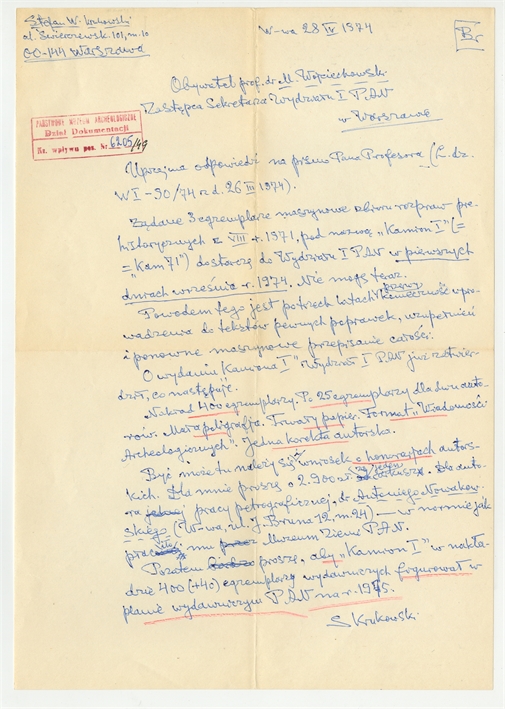 Stefan W. Krukowski
al. Świerczewsk. 101, m. 10
00-144 Warszawa
W-wa 28 IV 1974
Br
Obywatel prof. dr M. Wojciechowski
Zastępca Sekretarza Wydziału I PAN
w Warszawie
PAŃSTWOWE MUZEUM ARCHEOLOGICZNE
Dział Dokumentacji
Nr. wpływu poz. Nr 6205/49
Uprzejma odpowiedź na pismo Pana Profesora (L.dz.
W I-90/74 z d. 26 III 1974).
Żądane 3 egzemplarze maszynowe zbioru rozpraw pre-
historycznych z VIII r. 1971, pod nazwą „Kamron I” (=
= „Kam 71”) dostarczę do Wydziału I PAN w pierwszych
dniach września r. 1974. Nie mogę teraz.
Powodem tego jest po trzech latach konieczność wpro-
wadzenia do tekstów pewnych poprawek, uzupełnień
i ponowne maszynowe przepisanie całości.
O wydaniu „Kamrona I” Wydział I PAN już zatwier-
dził, co następuje.
Nakład 400 egzemplarzy. Po 25 egzemplarzy dla dwu auto-
rów. Mała poligrafja. Trwały papier. Format „Wiadomości
Archeologicznych”. Jedna korekta autorska.
Być może tu należy się wniosek o honorarjach autors-
kich. Dla mnie proszę o 2.900 zł za jeden arkusz. Dla auto-
ra pracy petrograficznej, dr Antoniego Nowakow-
skiego (W-wa, ul. J. Bruna 12, m. 94) — w normie jak
mu Muzeum Ziemi PAN.
Pozatem proszę, aby „Kamron I” w nakła-
dzie 400 (+40) egzemplarzy wydawniczych figurował w
planie wydawniczym PAN na r. 1975.
S Krukowski